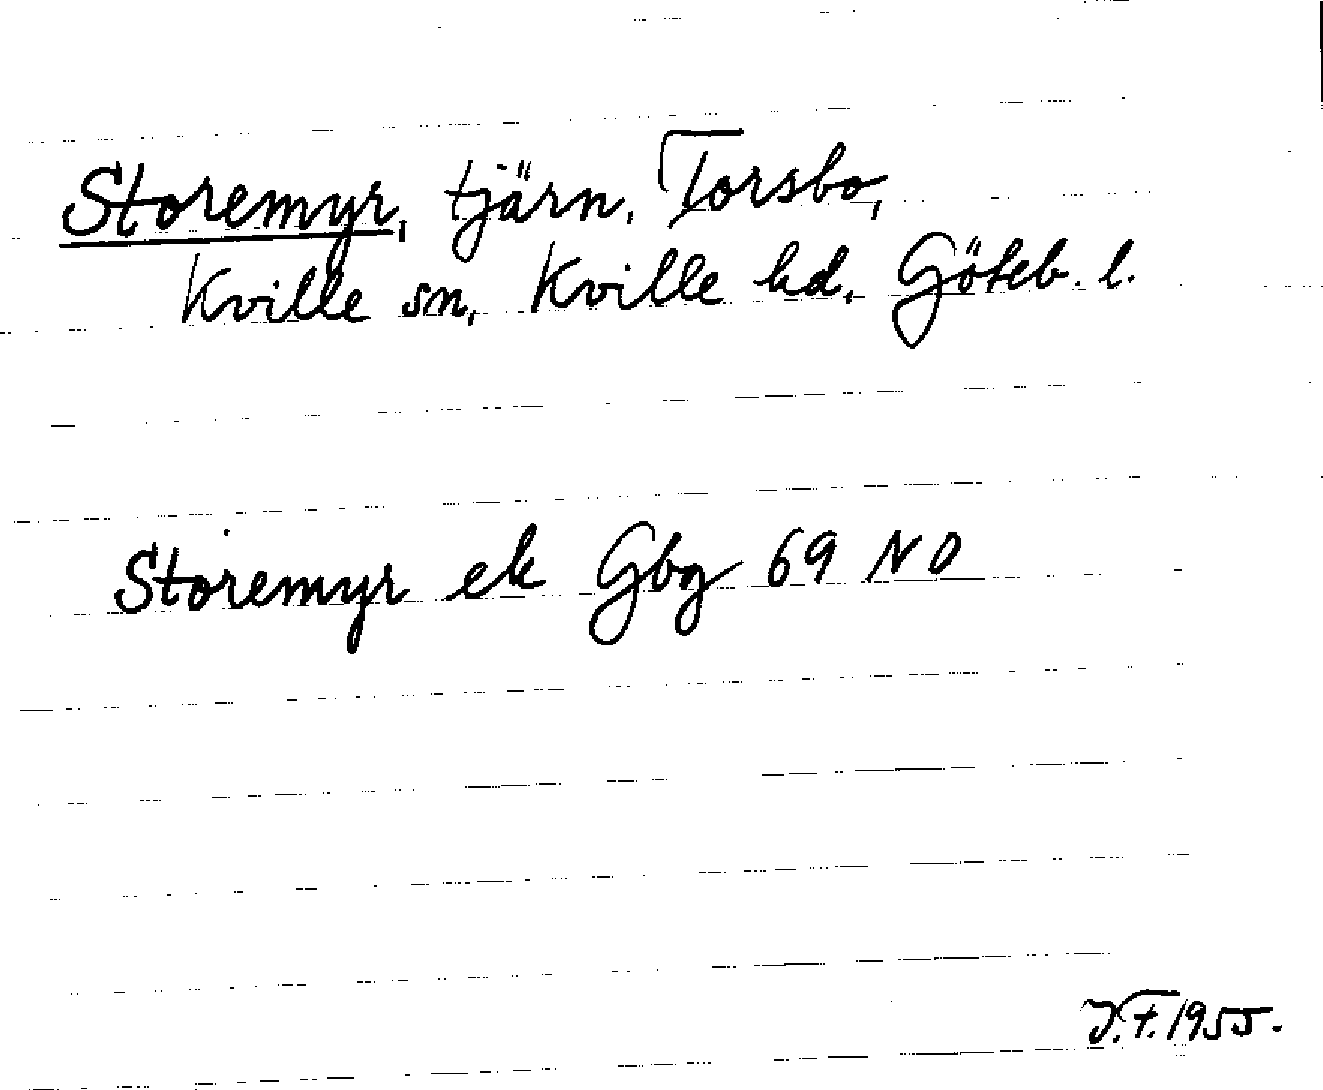 Storemyr, tjärn, Torsbo,
Kville sn, Kville hd, Göteb. l.
Storemyr ek Gbg 69 NO
J.F. 1955.